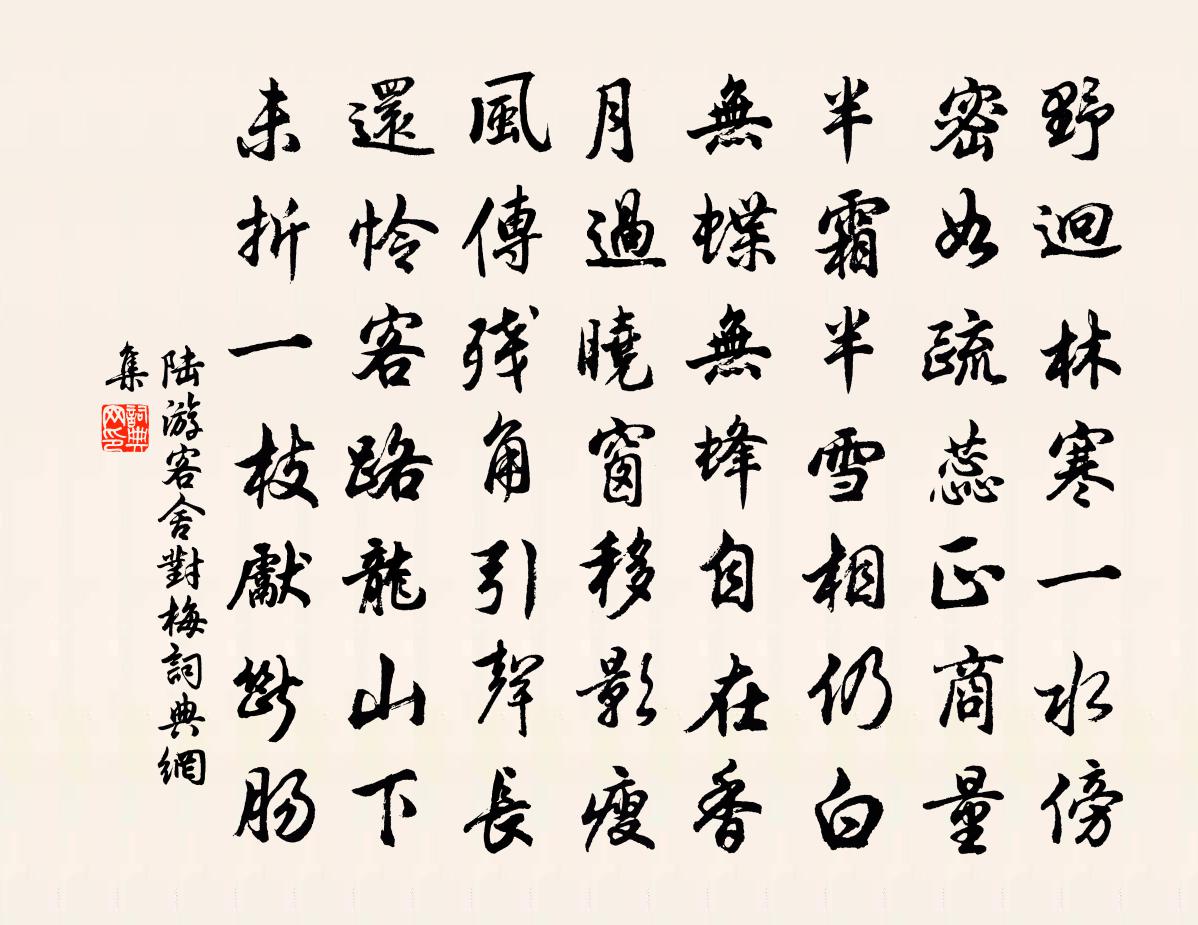 野迥林寒一水傍
密如疏蕊正商量
半霜半雪相仍白
無蝶無蜂自在香
月過曉窗移影瘦
風傳残角引聲長
還怜客路龍山下
未折一枝獻斷腸
陆游客舍對梅詞典網
集
詞典网印